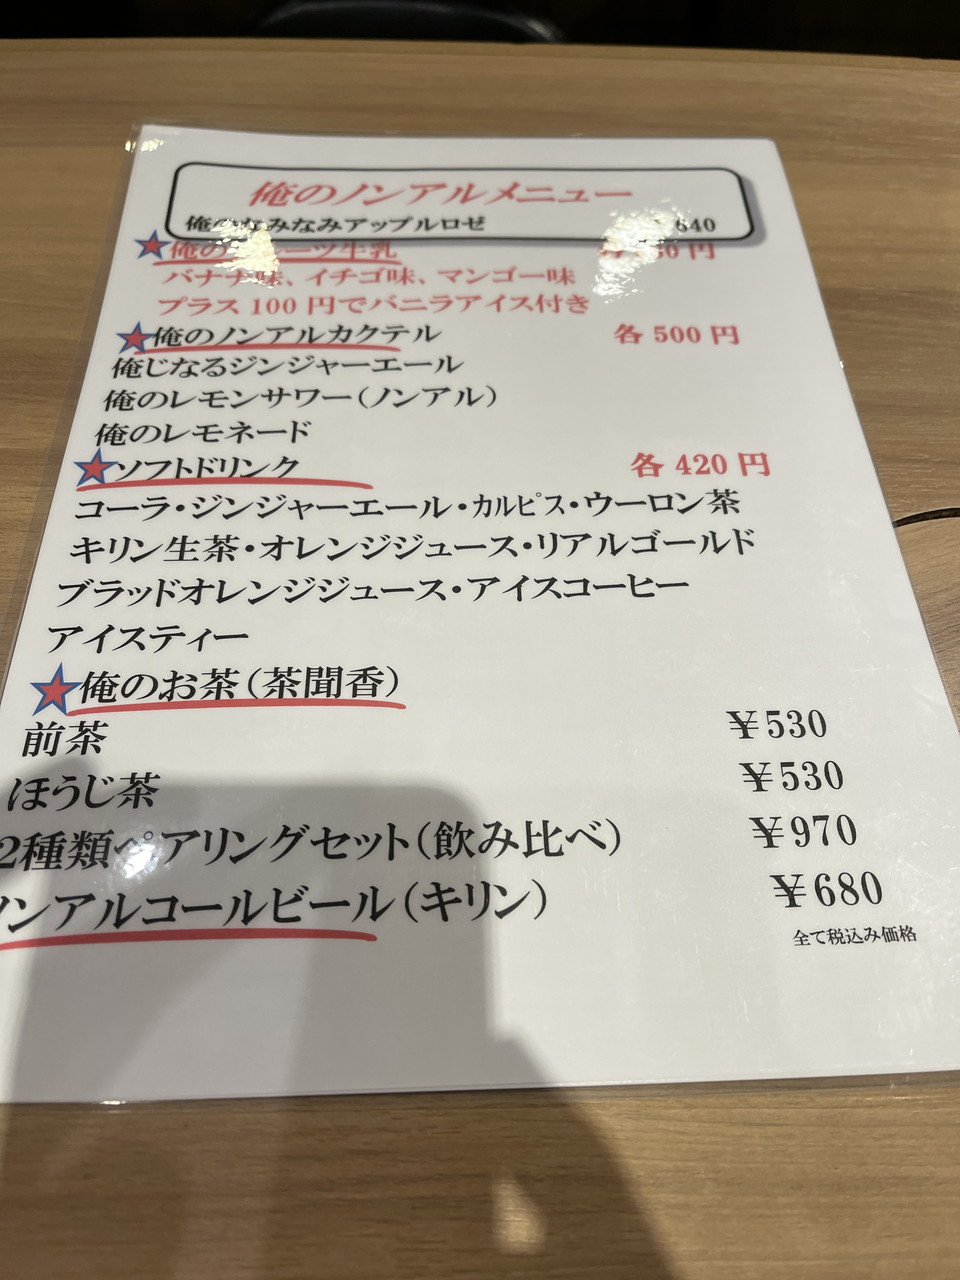 俺のノンアルメニュー
俺のなみなみアップルロゼ 640
俺のフルーツ牛乳 円
バナナ味、イチゴ味、マンゴー味
プラス100円でバニラアイス付き
俺のノンアルカクテル 各500円
俺じなるジンジャーエール
俺のレモンサワー(ノンアル)
俺のレモネード
ソフトドリンク 各420円
コーラ・ジンジャーエール・カルピス・ウーロン茶
キリン生茶・オレンジジュース・リアルゴールド
ブラッドオレンジジュース・アイスコーヒー
アイスティー
俺のお茶(茶聞香)
前茶 ¥530
ほうじ茶 ¥530
2種類ペアリングセット(飲み比べ) ¥970
ノンアルコールビール(キリン) ¥680
全て税込み価格